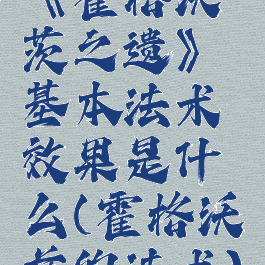 《霍格沃
茨之遗》
基本法术
效果是什
么(霍格沃
茨的法术)